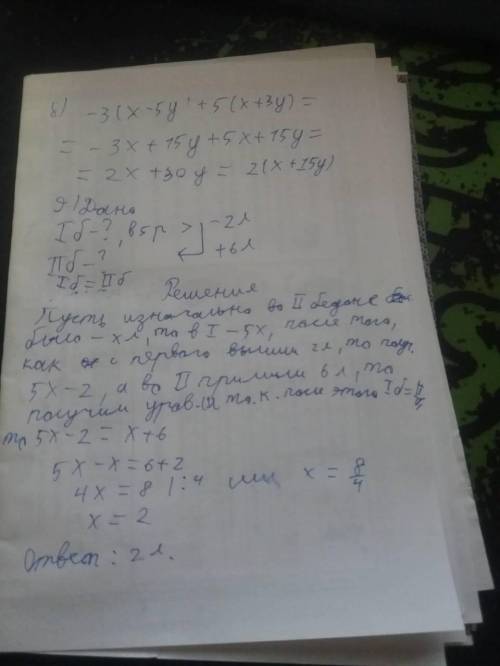 8) -3(x-5y)+5(x+3y)=
= -3x+15y+5x+15y=
= 2x+30y= 2(x+15y)
9) Дано
I б-?, в 5 р. > -2л
II б-? +6л
I б = II б
Решения
Пусть изначально во II бедоне
было - x л, то в I - 5x, после того,
как с первого вылили 2л, то пол.
5x-2, а во II прилили 6л, то
получим урав. т.к. после этого I б=II
то 5x-2=x+6
5x-x=6+2
4x=8 |:4 или x=8/4
x=2
Ответ: 2л.